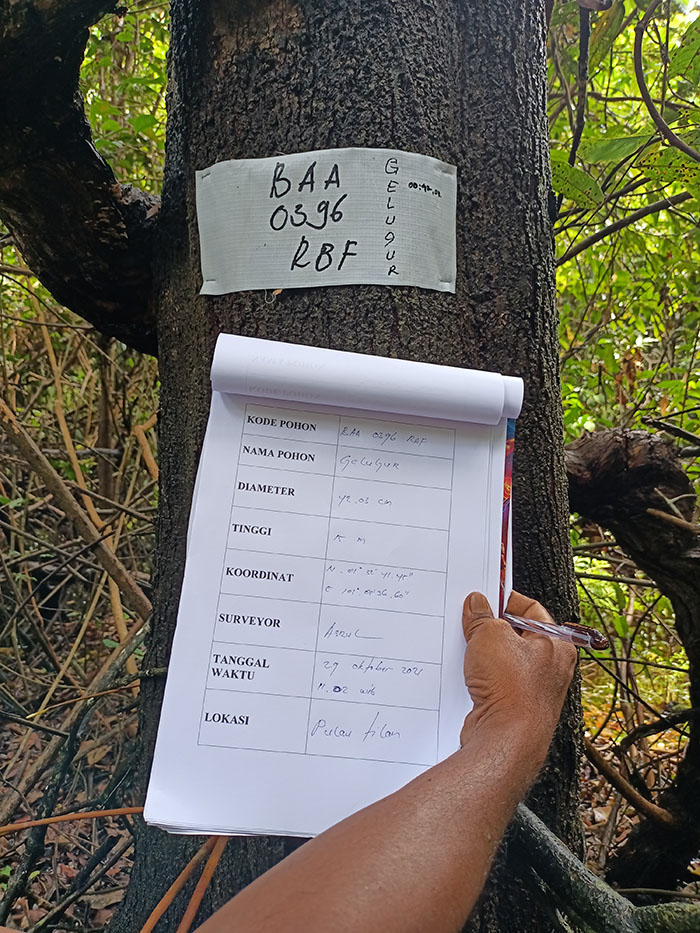 BAA
0396
RBF
GELUGUR
KODE POHON BAA 0396 RBF
NAMA POHON Gelugur
DIAMETER 42.03 cm
TINGGI 15 m
KOORDINAT N . 01° 41.45"
E 101° 36.60"
SURVEYOR Asrul
TANGGAL 29 oktober 2021
WAKTU 11.02 wib
LOKASI Pulau